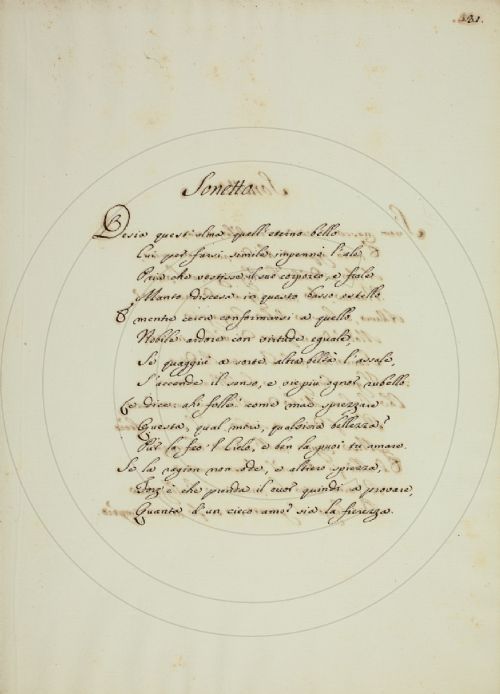 31.
Sonetto
Desia quest'alma quell'eterno bello
Cui per farsi simile impennò l'ale
Pria che vestisse il suo corporeo, e frale
Manto discesa in questo basso ostello
E mentre cerca conformarsi a quello
Nobile ardore con virtude eguale,
Se quaggiù a sorte altra beltà l'assale,
S'accende il senso, e vie più ognor rubello
E dice: ahi folle! come mai sprezzare
Questa, qual mira, qualsivia bellezza?
Pur la feo 'l Cielo, e ben la puoi tu amare.
Se la ragion non ode, e altiero sprezza,
Forz'è che prenda il cuor quindi a provare,
Quanta d'un cieco amor sia la fierezza.